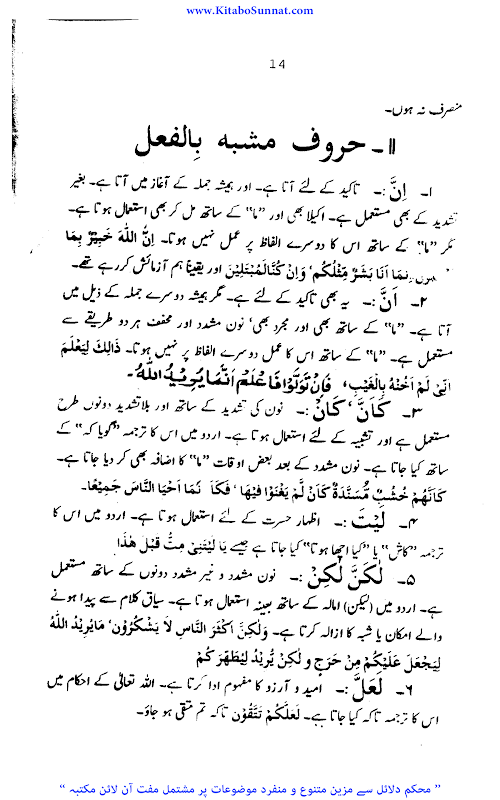 www.KitaboSunnat.com
14
منصرف نہ ہوں۔
۱۱۔ حروف مشبہ بِالفعل
۱۔ اِنَّ :۔ تاکید کے لئے آتا ہے۔ اور ہمیشہ جملہ کے آغاز میں آتا ہے۔ بغیر
تشدید کے بھی مستعمل ہے۔ اکیلا بھی اور ”ما“ کے ساتھ مل کر بھی استعمال ہوتا ہے۔
مگر ”ما“ کے ساتھ اس کا دوسرے الفاظ پر عمل نہیں ہوتا۔ اِنَّ اللّٰهَ خَبِیْرٌ بِمَا
نمَا اَنَا بَشَرٌ مِّثْلُكُم، وَاِنْ كُنَّا لَمُبْتَلِیْنَ اور یقیناً ہم آزمائش کر رہے تھے۔
۲۔ اَنَّ :۔ یہ بھی تاکید کے لئے ہے۔ مگر ہمیشہ دوسرے جملہ کے ذیل میں
آتا ہے۔ ”ما“ کے ساتھ بھی اور مجرد بھی، نون مشدد اور مخفف ہر دو طریقے سے
مستعمل ہے۔ ”ما“ کے ساتھ اس کا عمل دوسرے الفاظ پر نہیں ہوتا۔ ذَالِكَ لِیَعْلَمَ
اَنِّی لَمْ اَخُنْهُ بِالْغَیْبِ، فَاِنْ تَوَلَّوْا فَاعْلَمْ اَنَّمَا یُرِیْدُ اللّٰهُ۔
۳۔ كَاَنَّ، كَاَنْ :۔ نون کی تشدید کے ساتھ اور بلا تشدید دونوں طرح
مستعمل ہے اور تشبیہ کے لئے استعمال ہوتا ہے۔ اردو میں اس کا ترجمہ ”گویا کہ“ کے
ساتھ کیا جاتا ہے۔ نون مشدد کے بعد بعض اوقات ”ما“ کا اضافہ بھی کر دیا جاتا ہے۔
كَاَنَّهُمْ خُشُبٌ مُّسَنَّدَةٌ كَاَنْ لَّمْ یَغْنَوْا فِیْهَا، فَكَاَ نَّمَا اَحْیَا النَّاسَ جَمِیْعًا۔
۴۔ لَیْتَ :۔ اظہار حسرت کے لئے استعمال ہوتا ہے۔ اردو میں اس کا
ترجمہ ”کاش“ یا ”کیا اچھا ہوتا“ کیا جاتا ہے جیسے یَا لَیْتَنِی مِتُّ قَبْلَ هٰذَا
۵۔ لٰكِنَّ لٰكِنْ :۔ نون مشدد و غیر مشدد دونوں کے ساتھ مستعمل
ہے۔ اردو میں (لیکن) امالہ کے ساتھ بعینہ استعمال ہوتا ہے۔ سیاق کلام سے پیدا ہونے
والے امکان یا شبہ کا ازالہ کرتا ہے۔ وَلٰكِنَّ اَكْثَرَ النَّاسِ لَا یَشْكُرُوْن، مَا یُرِیْدُ اللّٰهُ
لِیَجْعَلَ عَلَیْكُمْ مِنْ حَرَجٍ وَلٰكِنْ یُّرِیْدُ لِیُطَهِّرَكُمْ
۶۔ لَعَلَّ :۔ امید و آرزو کا مفہوم ادا کرتا ہے۔ اللہ تعالٰی کے احکام میں
اس کا ترجمہ تاکہ کیا جاتا ہے۔ لَعَلَّكُمْ تَتَّقُوْن تاکہ تم متقی ہو جاؤ۔
” محکم دلائل سے مزین متنوع و منفرد موضوعات پر مشتمل مفت آن لائن مکتبہ “